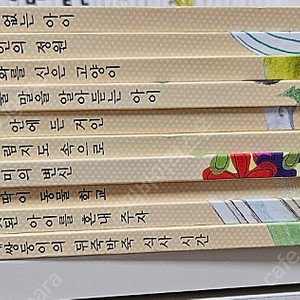 없는 아이
인의 정원
화를 신은 고양이
말을 알아듣는 아이
안에 든 거인
림지도 속으로
미의 변신
동물 학교
된 아이를 혼내 주자
쌍둥이의 뒤죽박죽 식사 시간